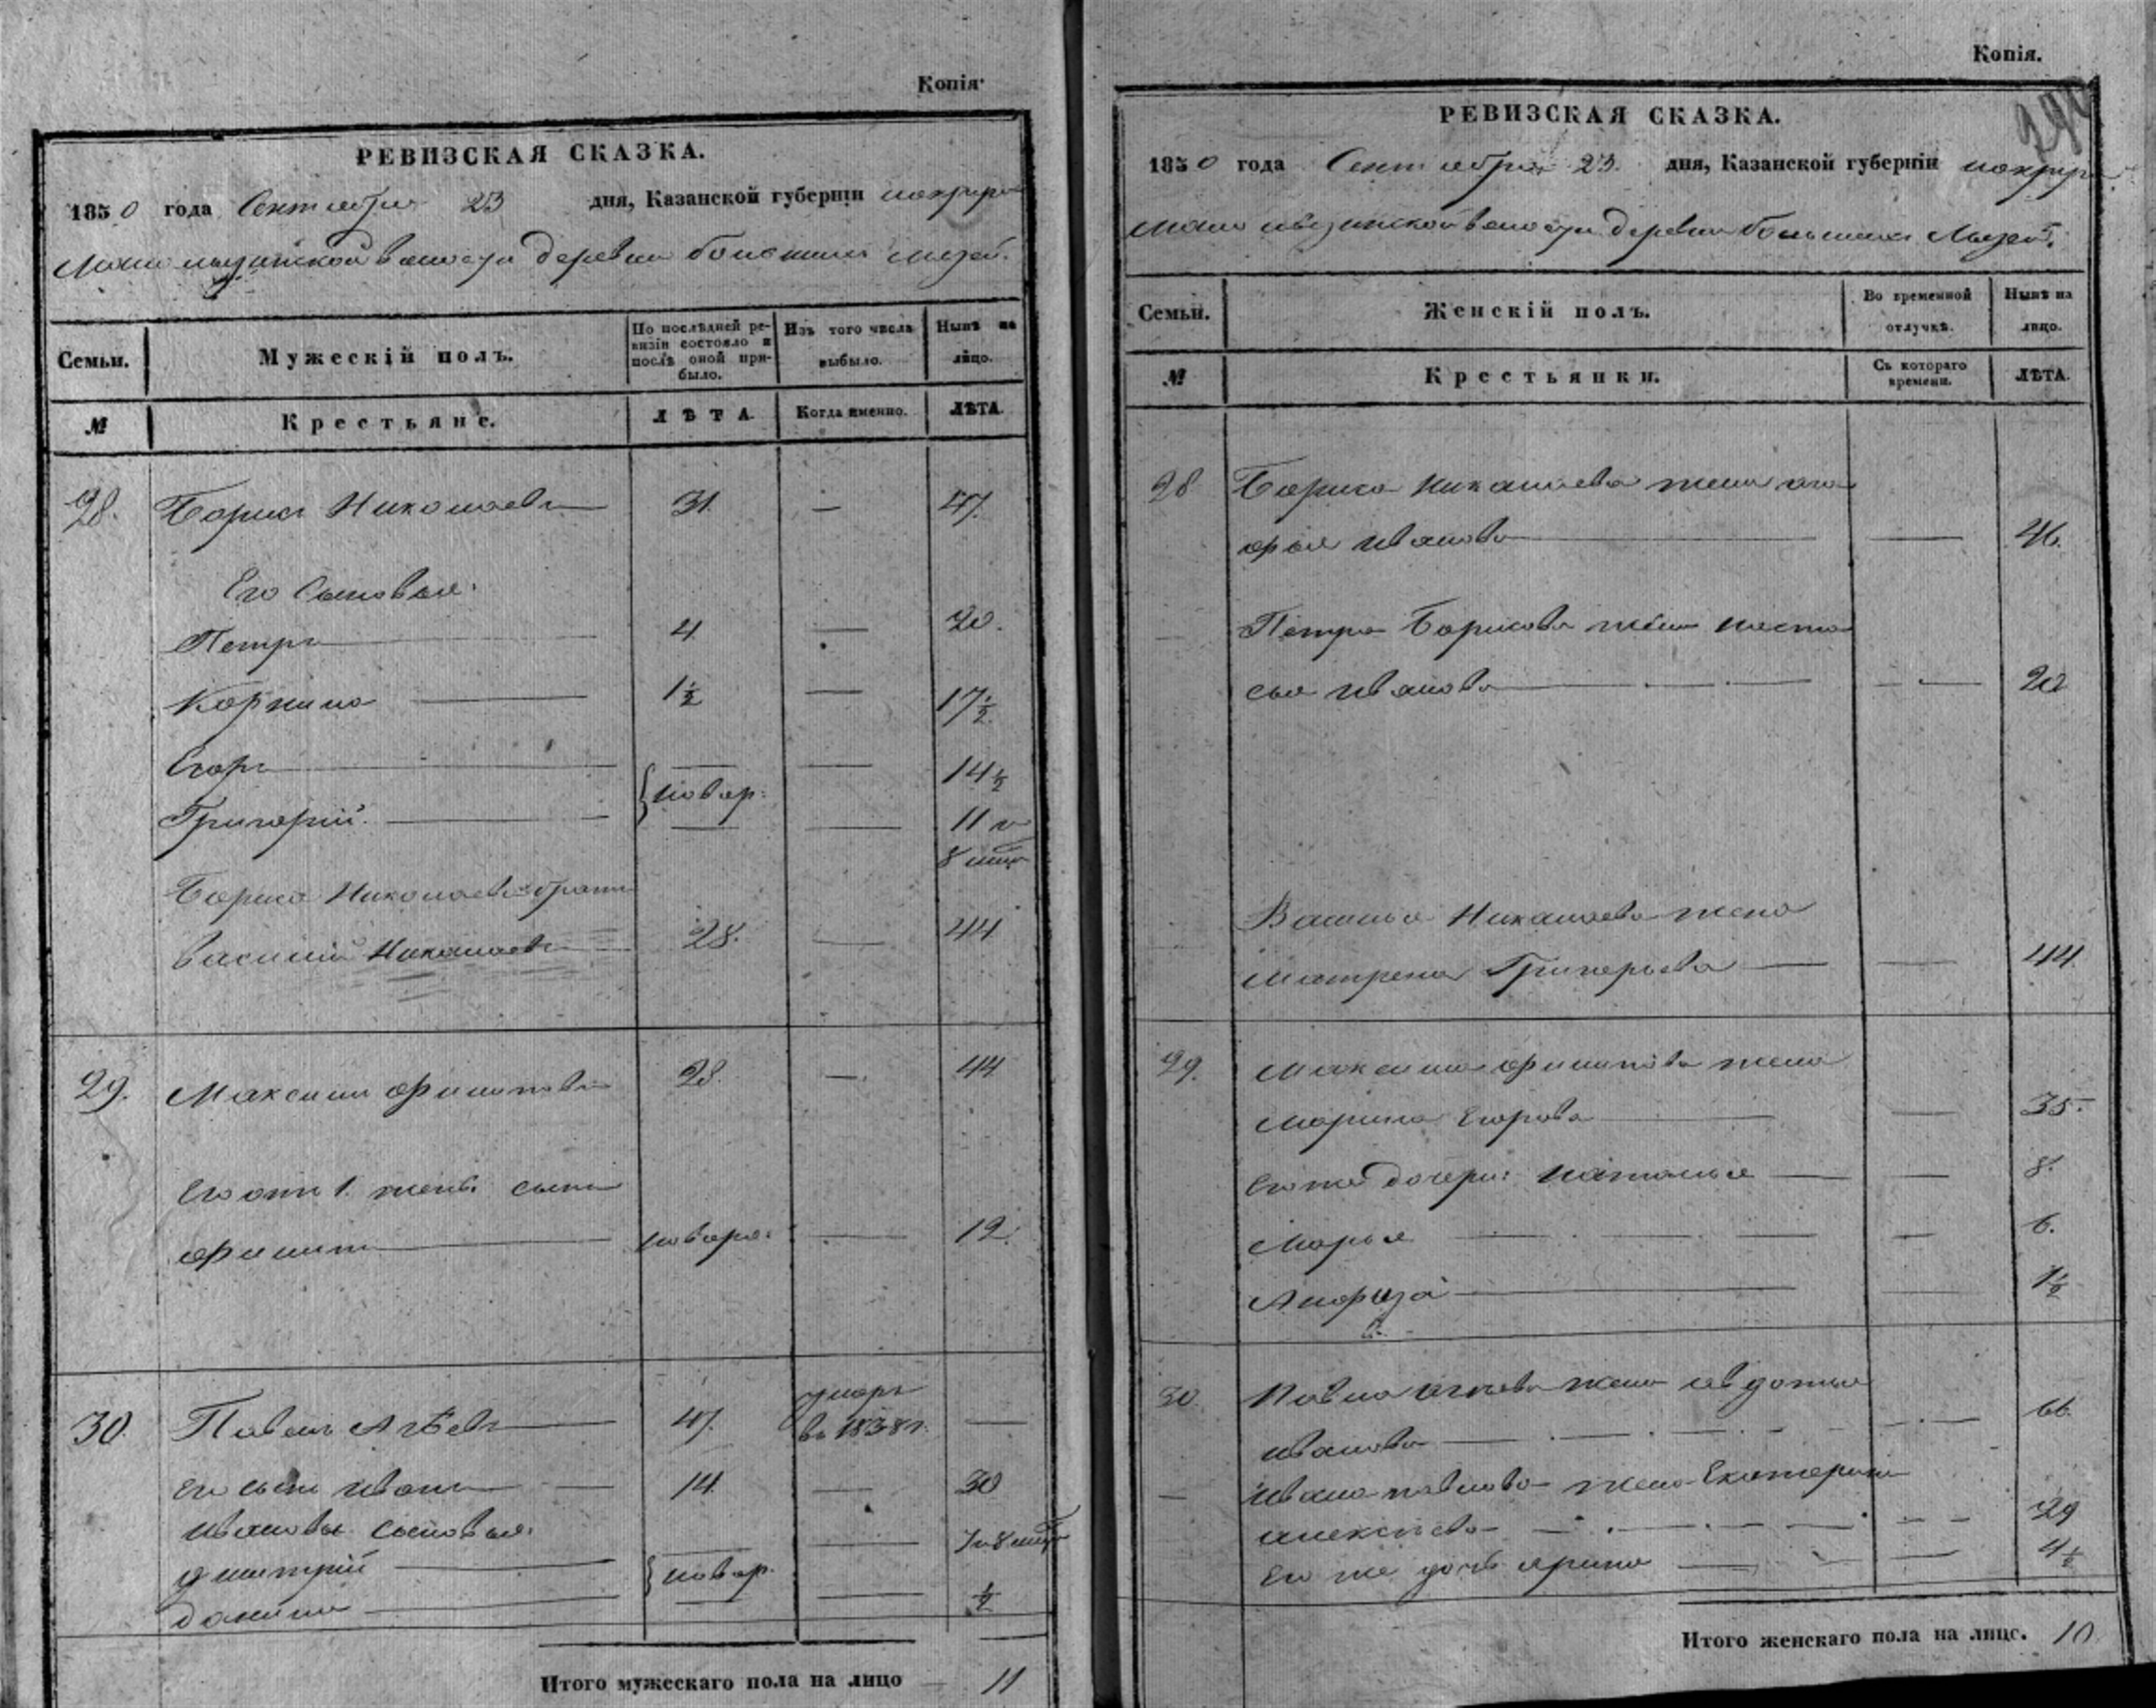 Копія.
РЕВИЗСКАЯ СКАЗКА.
1850 года Сентября 23 дня, Казанской губерніи
волости деревни большихъ
Семьи.
Мужескій полъ.
По послѣдней ревизіи состояло и послѣ оной прибыло.
Изъ того числа выбыло.
Нынѣ на лицо.
№
Крестьяне.
ЛѢТА.
Когда именно.
ЛѢТА.
28. Борисъ Николаевъ 31 — 47.
Его Сыновья:
Петръ 4 — 20.
Корнило 1½ — 17½
Егоръ — 14½
{новор:
Григорій. — 11 и
8 мцъ
Бориса Николаева братъ
Василий Николаевъ 28. — 44
29. Максимъ Филиповъ 28. — 44
Его отъ 1. жены сынъ
Филипъ новоро: — 12.
30. Павелъ Агѣевъ 47. умеръ въ 1838 г. —
Его сынъ Иванъ 14. — 30
Ивановы Сыновья:
Дмитрій — 7 и 8 мцъ
{новор.
Данило — ½
Итого мужескаго пола на лицо 11
Копія.
РЕВИЗСКАЯ СКАЗКА.
1850 года Сентября 23. дня, Казанской губерніи
волости деревни большихъ
Семьи.
Женскій полъ.
Во временной отлучкѣ.
Нынѣ на лицо.
№
Крестьянки.
Съ котораго времени.
ЛѢТА.
28 Бориса Николаева жена
Иванова — 46.
Петра Борисова жена Наста
сья Иванова — 20
Василья Николаева жена
Матрена Григорьева — 44.
29. Максима Филипова жена
Марина Егорова — 35.
Его же дочери: Наталья — 8.
Марья — 6.
— 1½
30. Павла Агѣева жена Авдотья
Иванова — 66.
Ивана Павлова жена Екатерина
Алексѣева — 29
Его же дочь Арина — 4½
Итого женскаго пола на лицо. 10